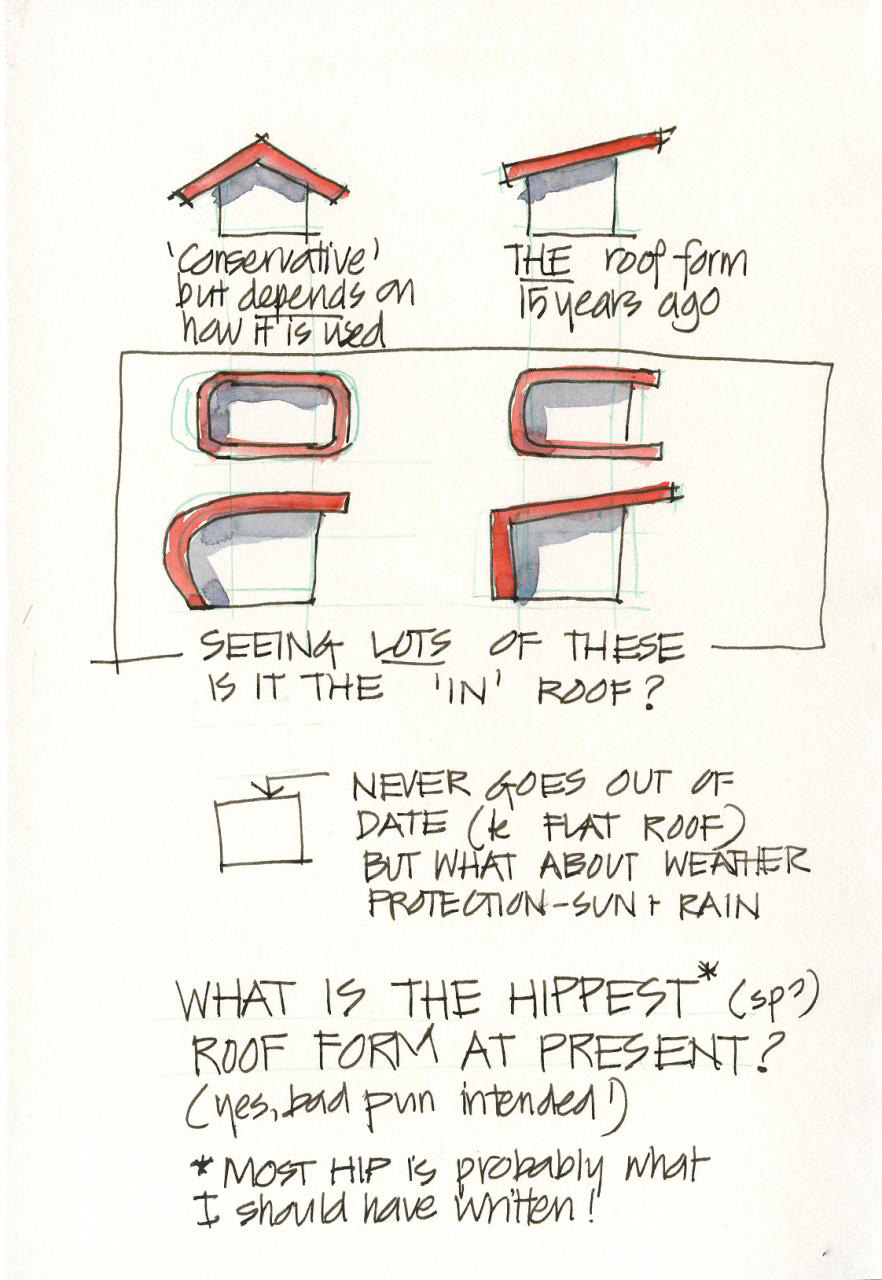 'Conservative'
but depends on
how it is used
THE roof form
15 years ago
SEEING LOTS OF THESE
IS IT THE 'IN' ROOF?
NEVER GOES OUT OF
DATE ( FLAT ROOF)
BUT WHAT ABOUT WEATHER
PROTECTION-SUN + RAIN
WHAT IS THE HIPPEST* (sp?)
ROOF FORM AT PRESENT?
(yes, bad pun intended!)
* MOST HIP is probably what
I should have written!